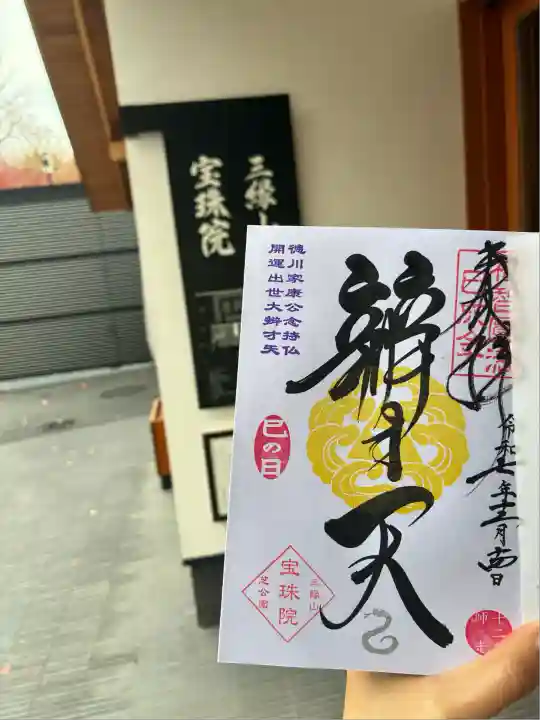 三縁山
宝珠院
奉拝
令和七年十二月
徳川家康公念持仏
開運出世大辨才天
辨才天
巳の日
三縁山
宝珠院
芝公園
十二
師走